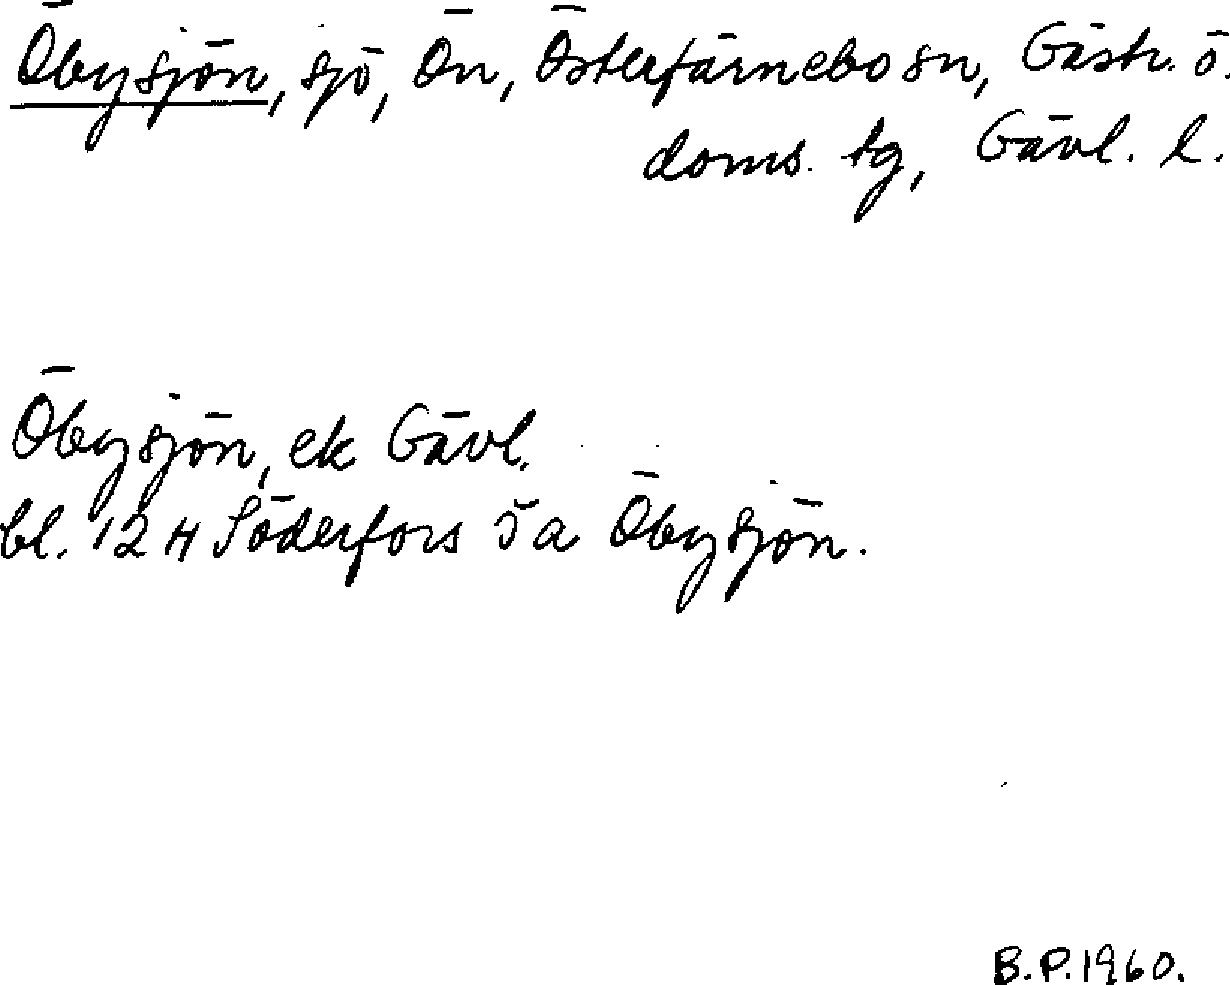 Öbysjön, sjö, Ön, Österfärnebo sn, Gästr. ö.
doms. tg, Gävl. l.
Öbysjön, ek Gävl.
bl. 12 H Söderfors Ö a Öbysjön.
B.P.1960.